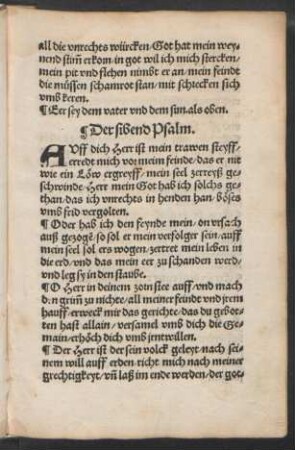 all die vnrechts würcken/Got hat mein wey-
nend stim̃ erkom/in got wil ich mich stercken/
mein pit vnd flehen nimbt er an/mein feindt
die müssen schamrot stan/mit schrecken sich
vmb keren.
¶Eer sey dem vater vnd dem sun als oben.
¶Der sibend Psalm.
AVff dich Herr ist mein trawen steyff/
erredt mich vor meim feinde/das er nit
wie ein Löw ergreyff/mein seel zerreyß ge-
schwinde/Herr mein Got hab ich solchs ge-
than/das ich vnrechts in henden han/böses
vmb frid vergolten.
¶Oder hab ich den feynde mein/on vrsach
auß gezogẽ/so sol er mein verfolger sein/auff
mein seel sol ers wogen/zertret mein leben in
die erd/vnd das mein eer zu schanden werd/
vnd leg sy in den staube.
¶O Herr in deinem zorn stee auff/vnd mach
dẽn grim̃ zu nichte/all meiner feindt vnd jrem
hauff/erweck mir das gerichte/das du gebot-
ten hast allain/versamel vmb dich die Ge-
main/erhöch dich vmb jrntwillen.
¶Der Herr ist der sein volck geleyt/nach sei-
nem will auff erden/richt mich nach meiner
grechtigkeyt/vñ laß im ende werden/der got-